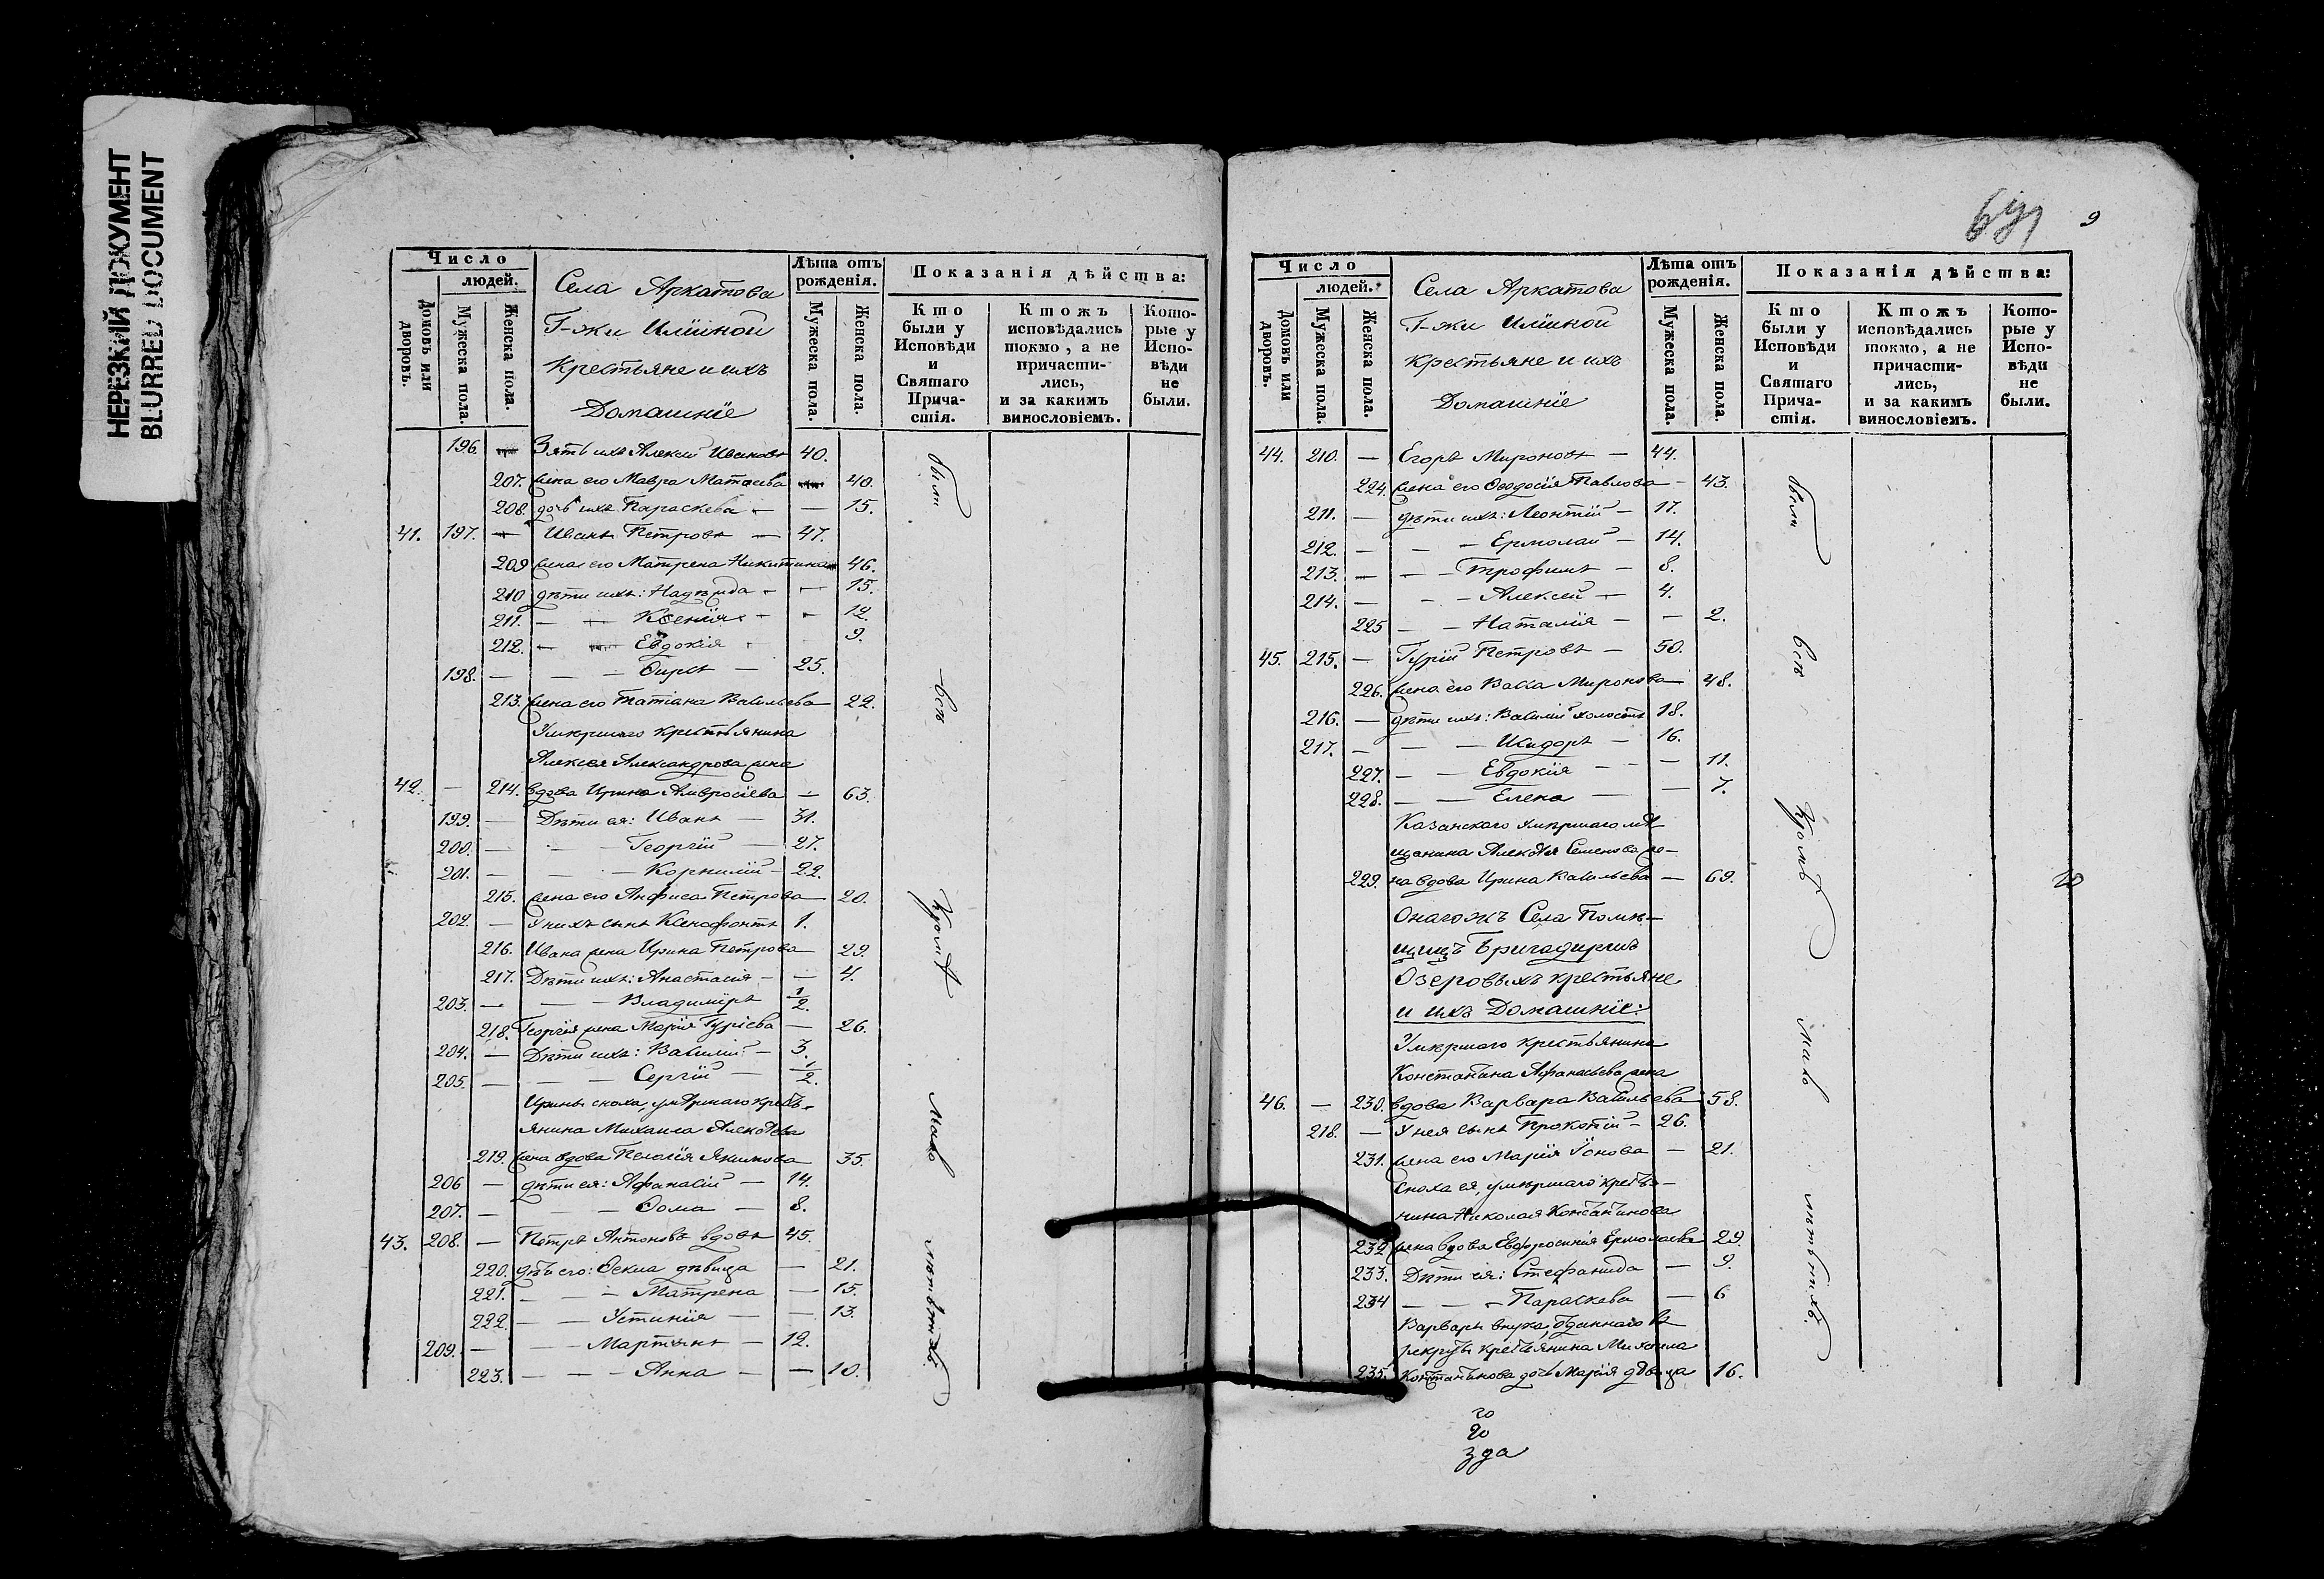 НЕРЕЗКИЙ ДОКУМЕНТ
BLURRED DOCUMENT
Число
людей.
Домовъ или дворовъ.
Мужеска пола.
Женска пола.
Села Аркатова
Г-жи Илиіной
Крестьяне и ихъ
Домашніе
Лѣта отъ рожденія.
Мужеска пола.
Женска пола.
Показанія дѣйства:
Кто были у Исповѣди и Святаго Причастія.
Ктожъ исповѣдались токмо, а не причастились, и за какимъ винословіемъ.
Которые у Исповѣди не были.
196. Зять ихъ Алексѣй Ивановъ 40.
207. жена его Мавра Матѳеева 40.
208. дочь ихъ Параскева — — 15.
41. 197. — Иванъ Петровъ — 47.
209 жена его Матрена Никитина 46.
210 дѣти ихъ: Надежда — — 15.
211. — — Ксенія — — 12.
212. — — Евдокія — 9.
198. — — — Ѳирсъ — 25.
213. жена его Татіана Васильева — 22.
Умершаго крестьянина
Алексея Александрова жена
42. — 214. вдова Ирина Амвросіева — 63.
199. — Дѣти ея: Иванъ — 31.
200. — — — Георгій — 27.
201. — — — Корнилій — 22.
215. жена его Анфиса Петрова 20.
202. — У нихъ сынъ Ксенофонтъ 1.
216. Ивана жена Ирина Петрова 29.
217. Дѣти ихъ: Анастасія — — 4.
203. — — — Владиміръ 1/2.
218. Георгія жена Марія Гуріева — 26.
204. — Дѣти ихъ: Василій — 3.
205. — — — Сергій — 1/2.
Ирины сноха, умершаго кресть-
янина Михаила Алексѣева
219. жена вдова Пелагія Якимова 35.
206 — дѣти ея: Афанасій — 14.
207. — — — Ѳома — 8.
43. 208. — Петръ Антоновъ вдовъ 45.
220. дѣти его: Ѳекла дѣвица — 21.
221. — — — Матрена — 15.
222. — — Устинія — — 13.
209. — — — Мартынъ — 12.
223. — — — Анна — — 10.
были
всѣ
кромѣ
мало
лѣтныхъ
9
Число
людей.
Домовъ или дворовъ.
Мужеска пола.
Женска пола.
Села Аркатова
Г-жи Илиіной
Крестьяне и ихъ
Домашніе
Лѣта отъ рожденія.
Мужеска пола.
Женска пола.
Показанія дѣйства:
Кто были у Исповѣди и Святаго Причастія.
Ктожъ исповѣдались токмо, а не причастились, и за какимъ винословіемъ.
Которые у Исповѣди не были.
44. 210. — Егоръ Мироновъ — 44.
224. жена его Ѳеодосія Павлова — 43.
211. — дѣти ихъ: Леонтій — 17.
212. — — — Ермолай — 14.
213. — — — Трофимъ — 8.
214. — — — Алексѣй — 4.
225 — — Наталія — — 2.
45. 215. — Гурій Петровъ — 50.
226. жена его Васса Миронова — 48.
216. — дѣти ихъ: Василій холостъ 18.
217. — — — Исидоръ — 16.
227. — — Евдокія — — — 11.
228. — — Елена — — 7.
Казанскаго умершаго мѣ
щанина Алексѣя Семенова же-
229. на вдова Ирина Васильева — 69.
Онагожъ Села Помѣ-
щицъ Бригадирши
Озеровыхъ крестьяне
и ихъ Домашніе:
Умершаго крестьянина
Константина Афанасьева жена
46. — 230. вдова Варвара Васильева 58.
218. — У нея сынъ Прокопій — 26.
231. жена его Марія Іонова — 21.
Сноха ея, умершаго кресть-
нина Николая Константинова
232 жена вдова Евфросинія Ермолаева 29.
233. Дѣти ея: Стефанида — 9.
234 — — — Параскева — 6
Варвары внука, отданнаго въ
рекруты крестьянина Михаила
235. Константинова дочь Марія дѣвица 16.
были
всѣ
кромѣ
мало
лѣтныхъ